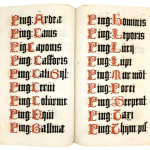 Ping: Ardeæ
Ping: Canis
Pig: Caponis
Ping: Castoris
Ping: Cati Syl:
Ping: Cervi
Ping: Columræ
Ping: Equi
Ping: Gallinæ
Ping: Hominis
Ping: Leporis
Ping: Lucij
Ping: Lupi
Ping: Mur mõt
Ping: Porci
Ping: Serpent
Ping: Taxi
Ping: Thym pis